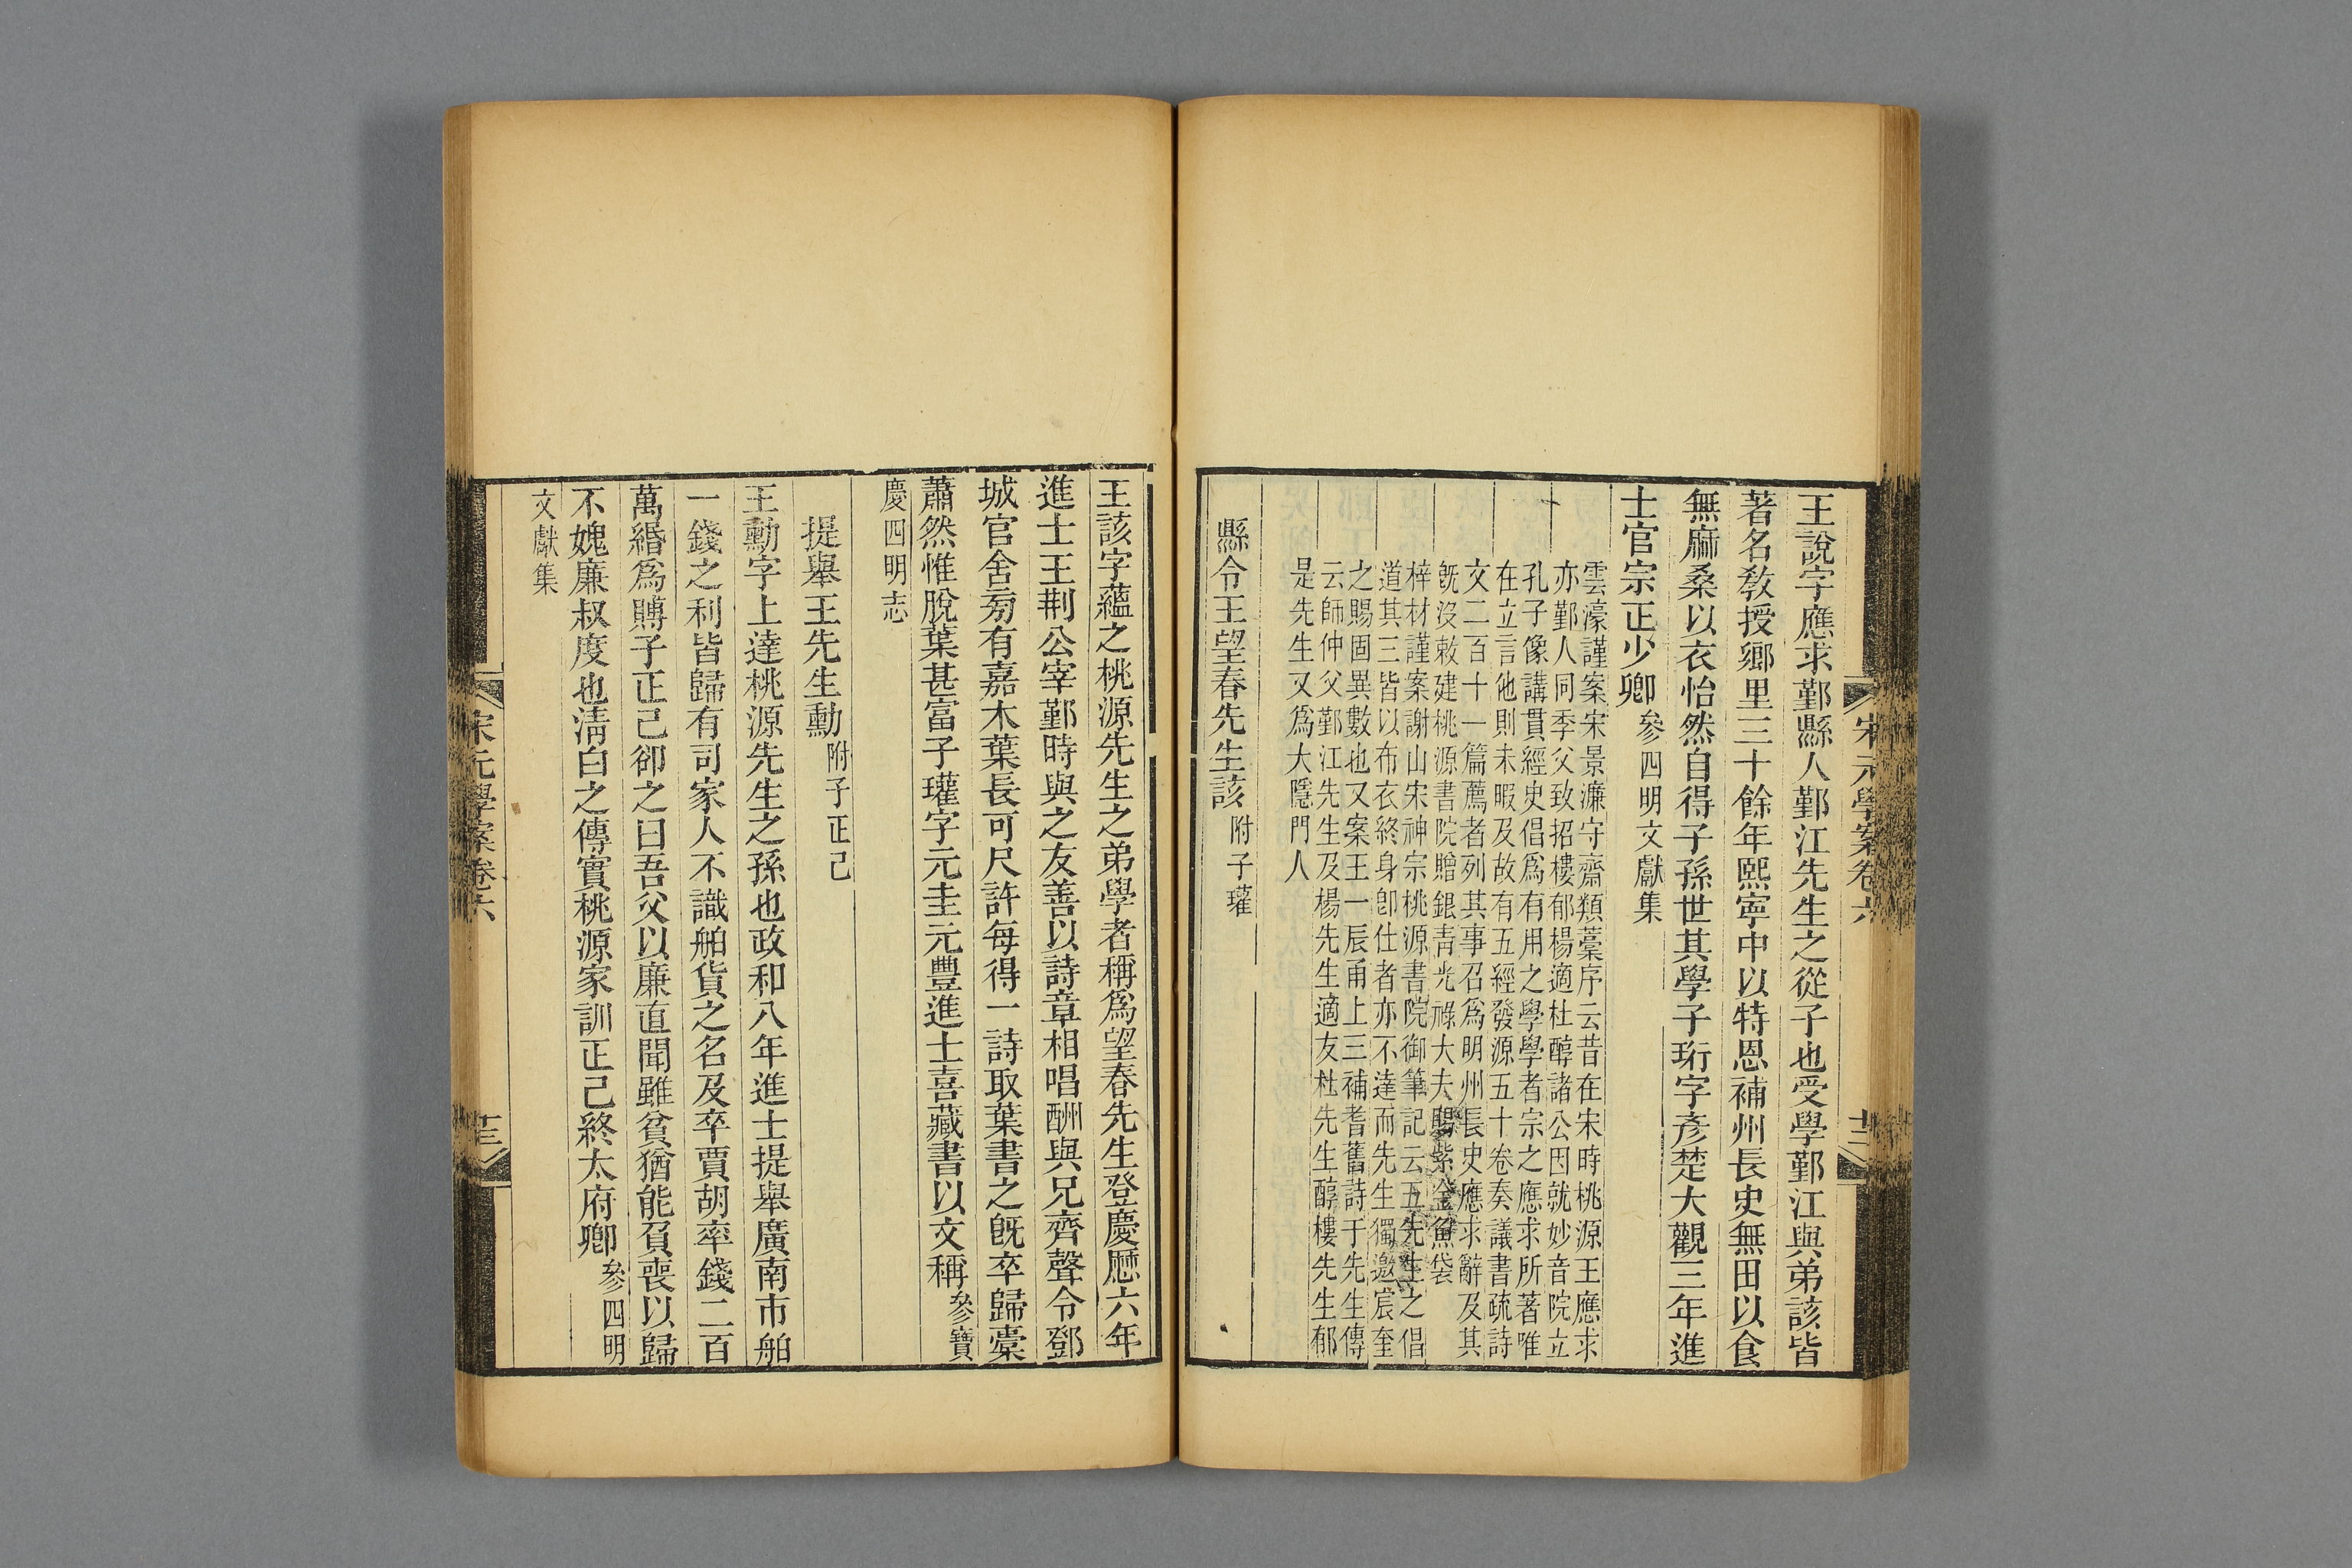 宋元學案卷六
十二
王說字應求鄞縣人鄞江先生之從子也受學鄞江與弟該皆
著名敎授鄉里三十餘年熙寧中以特恩補州長史無田以食
無麻桑以衣怡然自得子孫世其學子珩字彥楚大觀三年進
士官宗正少卿參四明文獻集
雲濠謹案宋景濂守齋類藁序云昔在宋時桃源王應求
亦鄞人同季父致招樓郁楊適杜醇諸公因就妙音院立
孔子像講貫經史倡爲有用之學學者宗之應求所著唯
在立言他則未暇及故有五經發源五十卷奏議書疏詩
文二百十一篇薦者列其事召爲明州長史應求辭及其
旣沒敕建桃源書院贈銀靑光祿大夫賜紫金魚袋
梓材謹案謝山宋神宗桃源書院御筆記云五先生之倡
道其三皆以布衣終身卽仕者亦不達而先生獨邀宸奎
之賜固異數也又案王一辰甬上三補耆舊詩于先生傳
云師仲父鄞江先生及楊先生適友杜先生醇樓先生郁
是先生又爲大隱門人
縣令王望春先生該附子瓘
王該字蘊之桃源先生之弟學者稱爲望春先生登慶曆六年
進士王荆公宰鄞時與之友善以詩章相唱酬與兄齊聲令鄧
城官舍旁有嘉木葉長可尺許每得一詩取葉書之旣卒歸橐
蕭然惟脫葉甚富子瓘字元圭元豐進士喜藏書以文稱參寶
慶四明志
提舉王先生勳附子正己
王勳字上達桃源先生之孫也政和八年進士提舉廣南市舶
一錢之利皆歸有司家人不識舶貨之名及卒賈胡率錢二百
萬緡爲賻子正己卻之曰吾父以廉直聞雖貧猶能負喪以歸
不媿廉叔度也淸白之傳實桃源家訓正己終太府卿參四明
文獻集
宋元學案卷六
十三